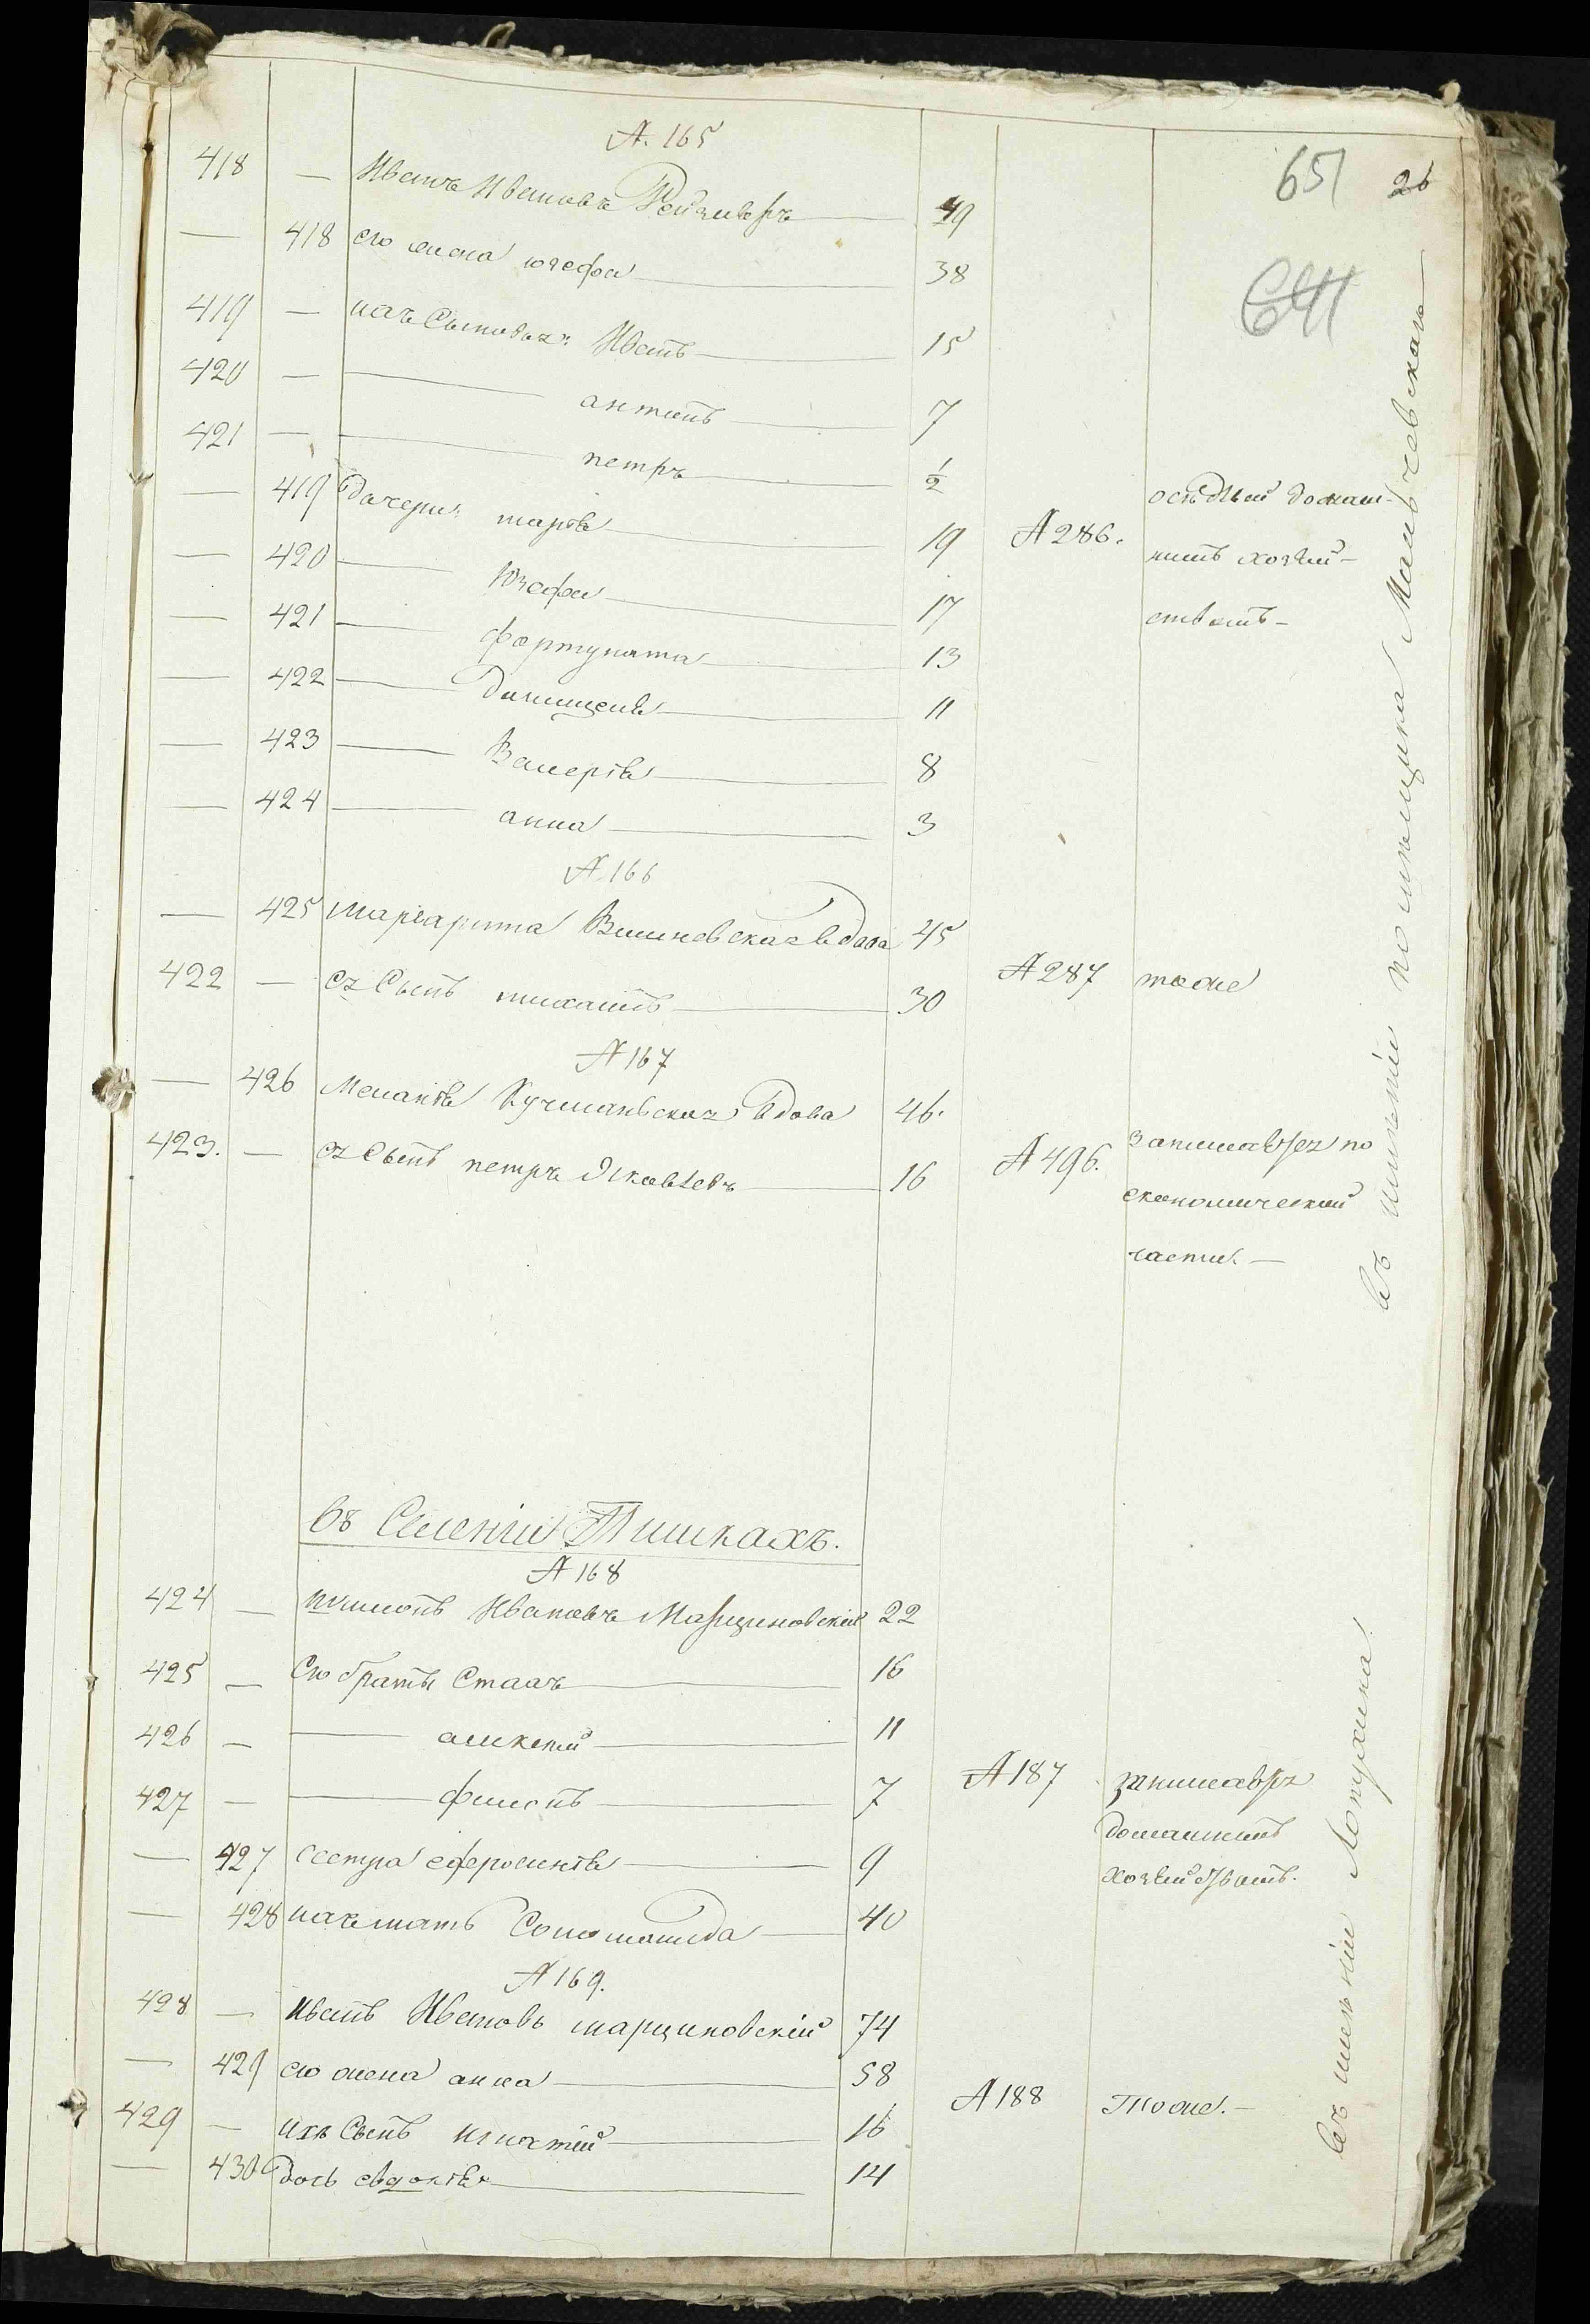 651 26
641
А. 165
418 — Иванъ Ивановъ Рейзмеръ — 49
— 418 его жена юзефа — 38
419 — ихъ Сыновья: Иванъ — 15
420 — — антонъ — 7
421 — — петръ — 1/2
— 419 Дочери: марія — 19
— 420 — Юзефа — 17
— 421 — фортуната — 13
— 422 — Доминцеля — 11
— 423 — Валерія — 8
— 424 — анна — 3
А 286. осѣдлый домаш-
нимъ хозяй-
ствомъ —
А 166
— 425 Маргарита Вишневская вдова 45
422 — Ея Сынъ михаилъ — 30
А 287 тоже
А 167
— 426 Меланія Кучманьская Вдова 46.
423. — Ея Сынъ петръ Яковлевъ — 16
А 496. Занимается по
економической
части. —
въ имѣніи помѣщика
въ Селеніи Тишкахъ.
А 168
424 — Филимонъ Ивановъ Марциновскій 22
425 — Его братья Стахъ — 16
426 — — алексѣй — 11
427 — — филипъ — 7
— 427 сестра ефросинія — 9
— 428 ихъ мать Соломонида — 40
А 187 занимается
домашнимъ
хозяйствомъ.
А 169.
428 — Иванъ Ивановъ марциновскій 74
— 429 его жена анна — 58
429 — ихъ Сынъ игнатій — 16
— 430 Дочь евдокія — 14
А 188 Тоже. —
въ имѣніи Лопухина